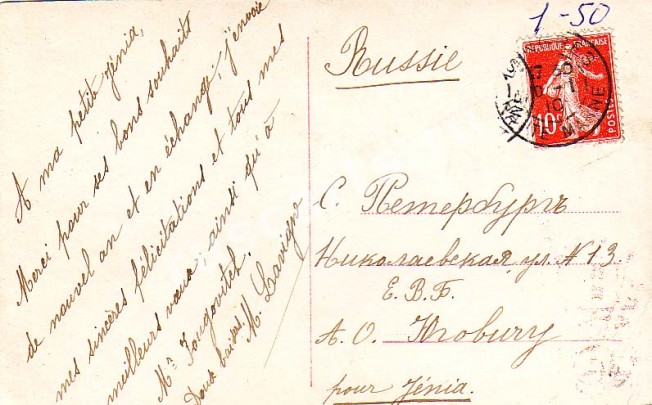 1-50
A ma petite Jénia,
Merci pour ses bons souhaits
de nouvel an et en échange, j'envoie
mes sincères félicitations et tous mes
meilleurs vœux, ainsi qu'à
Mr Jougovitch.
Doux baisers. M. Lavigne
Russie
REPUBLIQUE FRANÇAISE
10c
POSTES
MARNE
С. Петербургъ
Николаевская ул. N 13.
Е. В. Б.
А. О. Юговичу
pour Jénia.